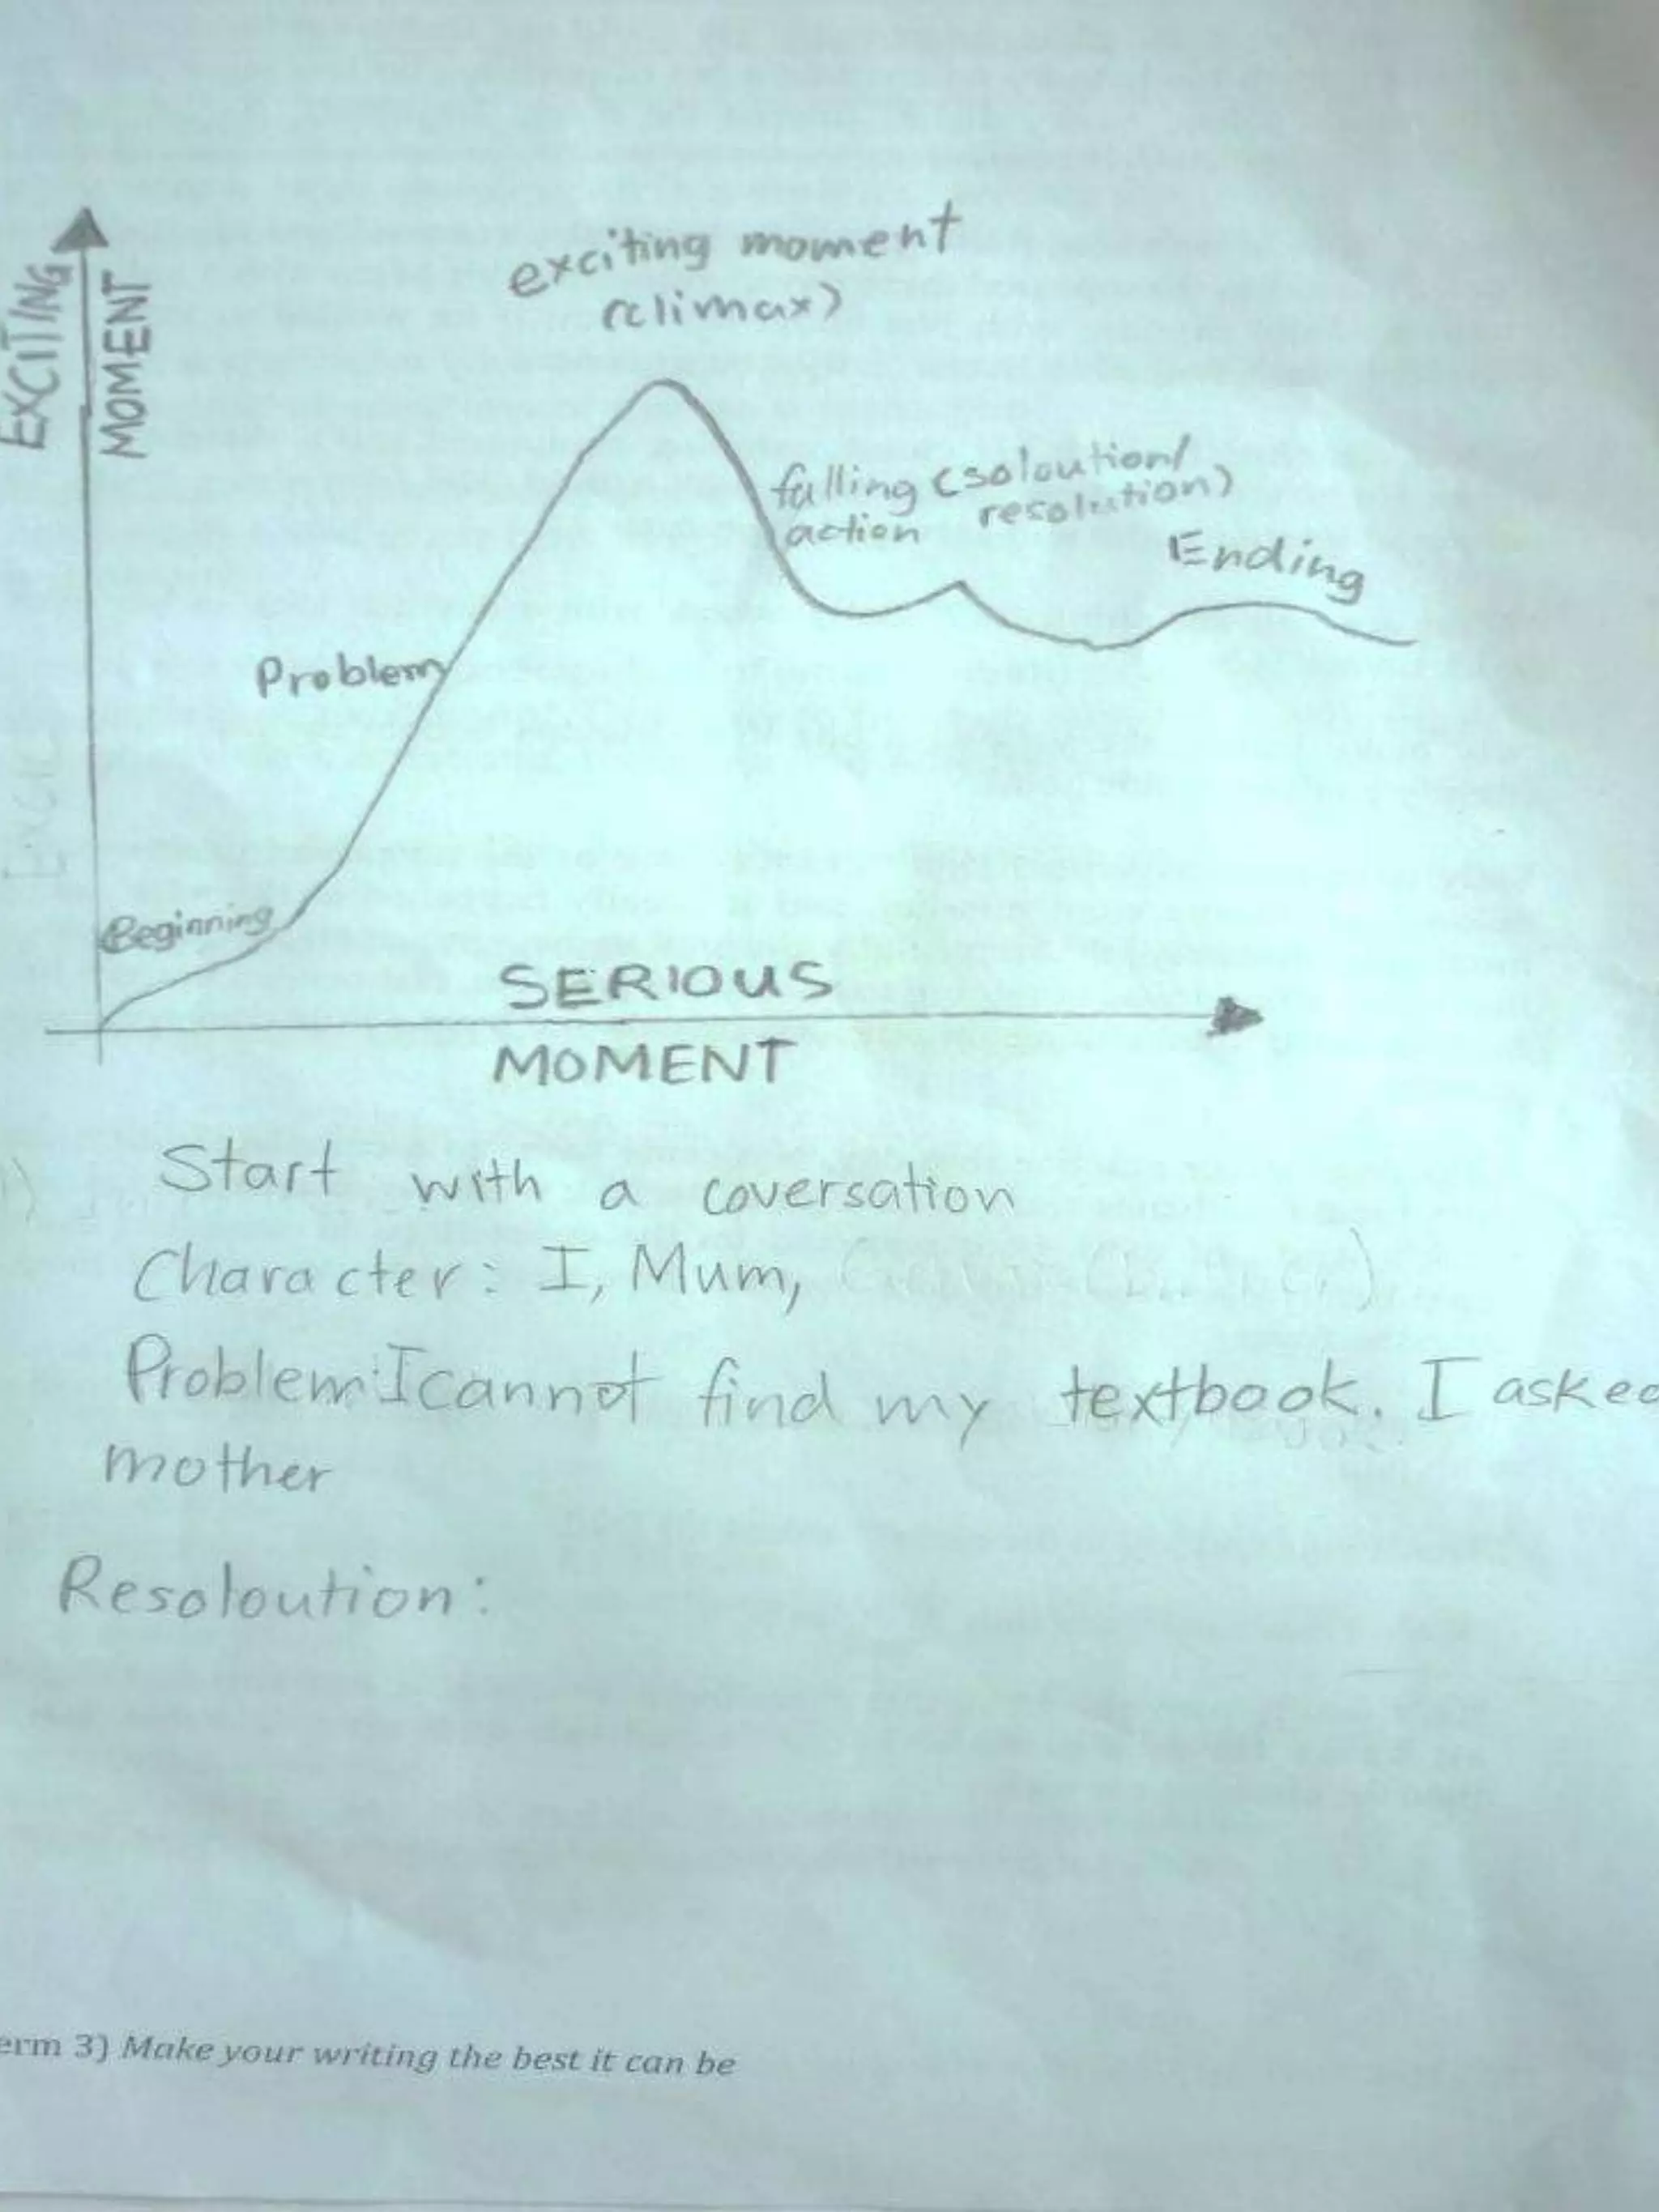 EXCITING
MOMENT
exciting moment
(climax)
falling (soloution/
action resolution)
Ending
Problem
Beginning
SERIOUS
MOMENT
Start with a coversation
Character: I, Mum,
Problem: I cannot find my textbook. I asked
mother
Resoloution:
erm 3) Make your writing the best it can be